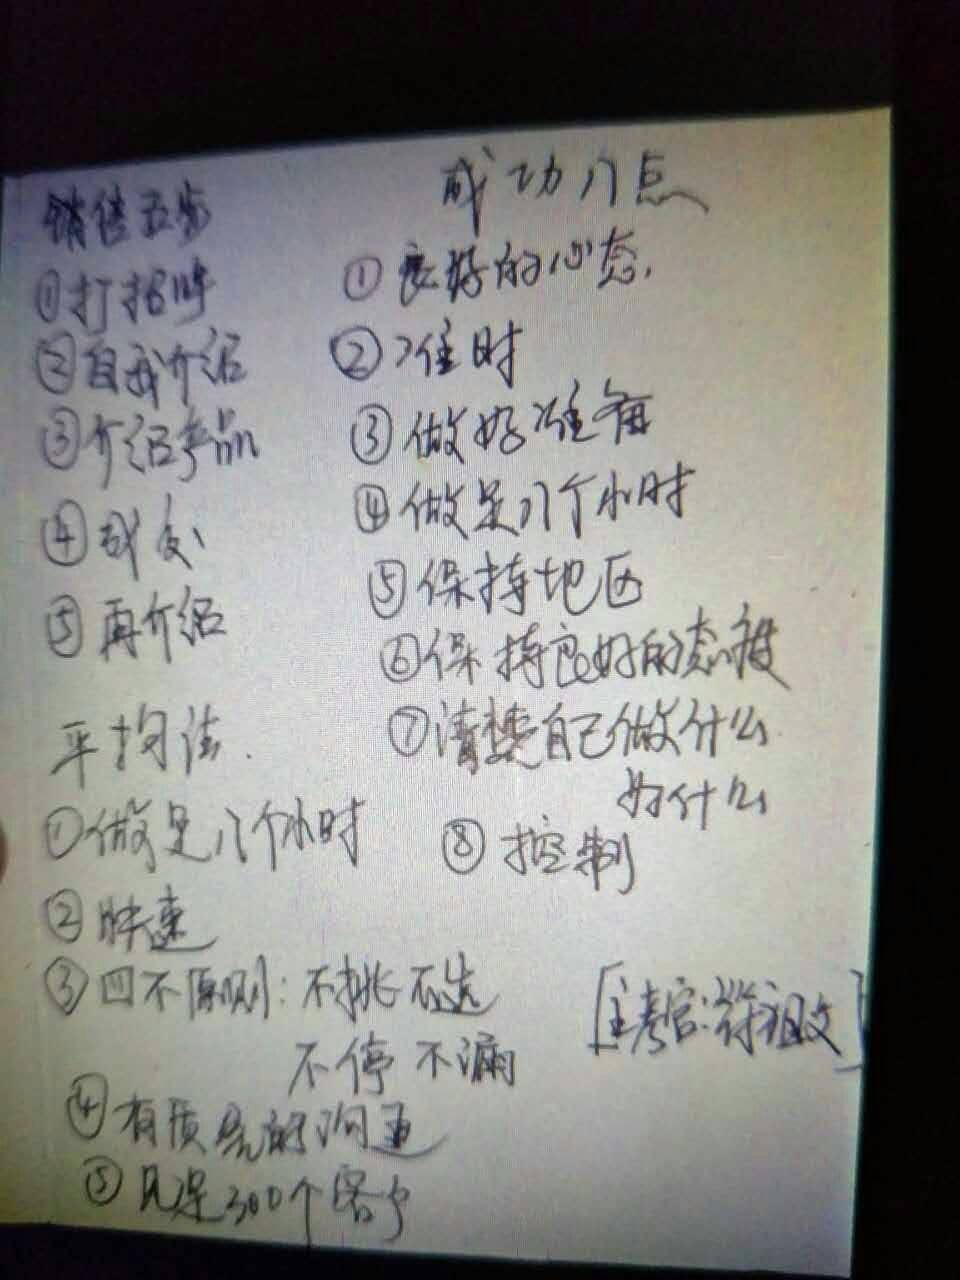 销售五步
①打招呼
②自我介绍
③介绍产品
④成交
⑤再介绍
平均法
①做足八个小时
②快速
③四不原则：不挑不选
不停不漏
④有质量的沟通
⑤见足300个客户
成功八点
①良好的心态
②准时
③做好准备
④做足八个小时
⑤保持地区
⑥保持良好的态度
⑦清楚自己做什么
为什么
⑧控制
[主考官：符祖文]